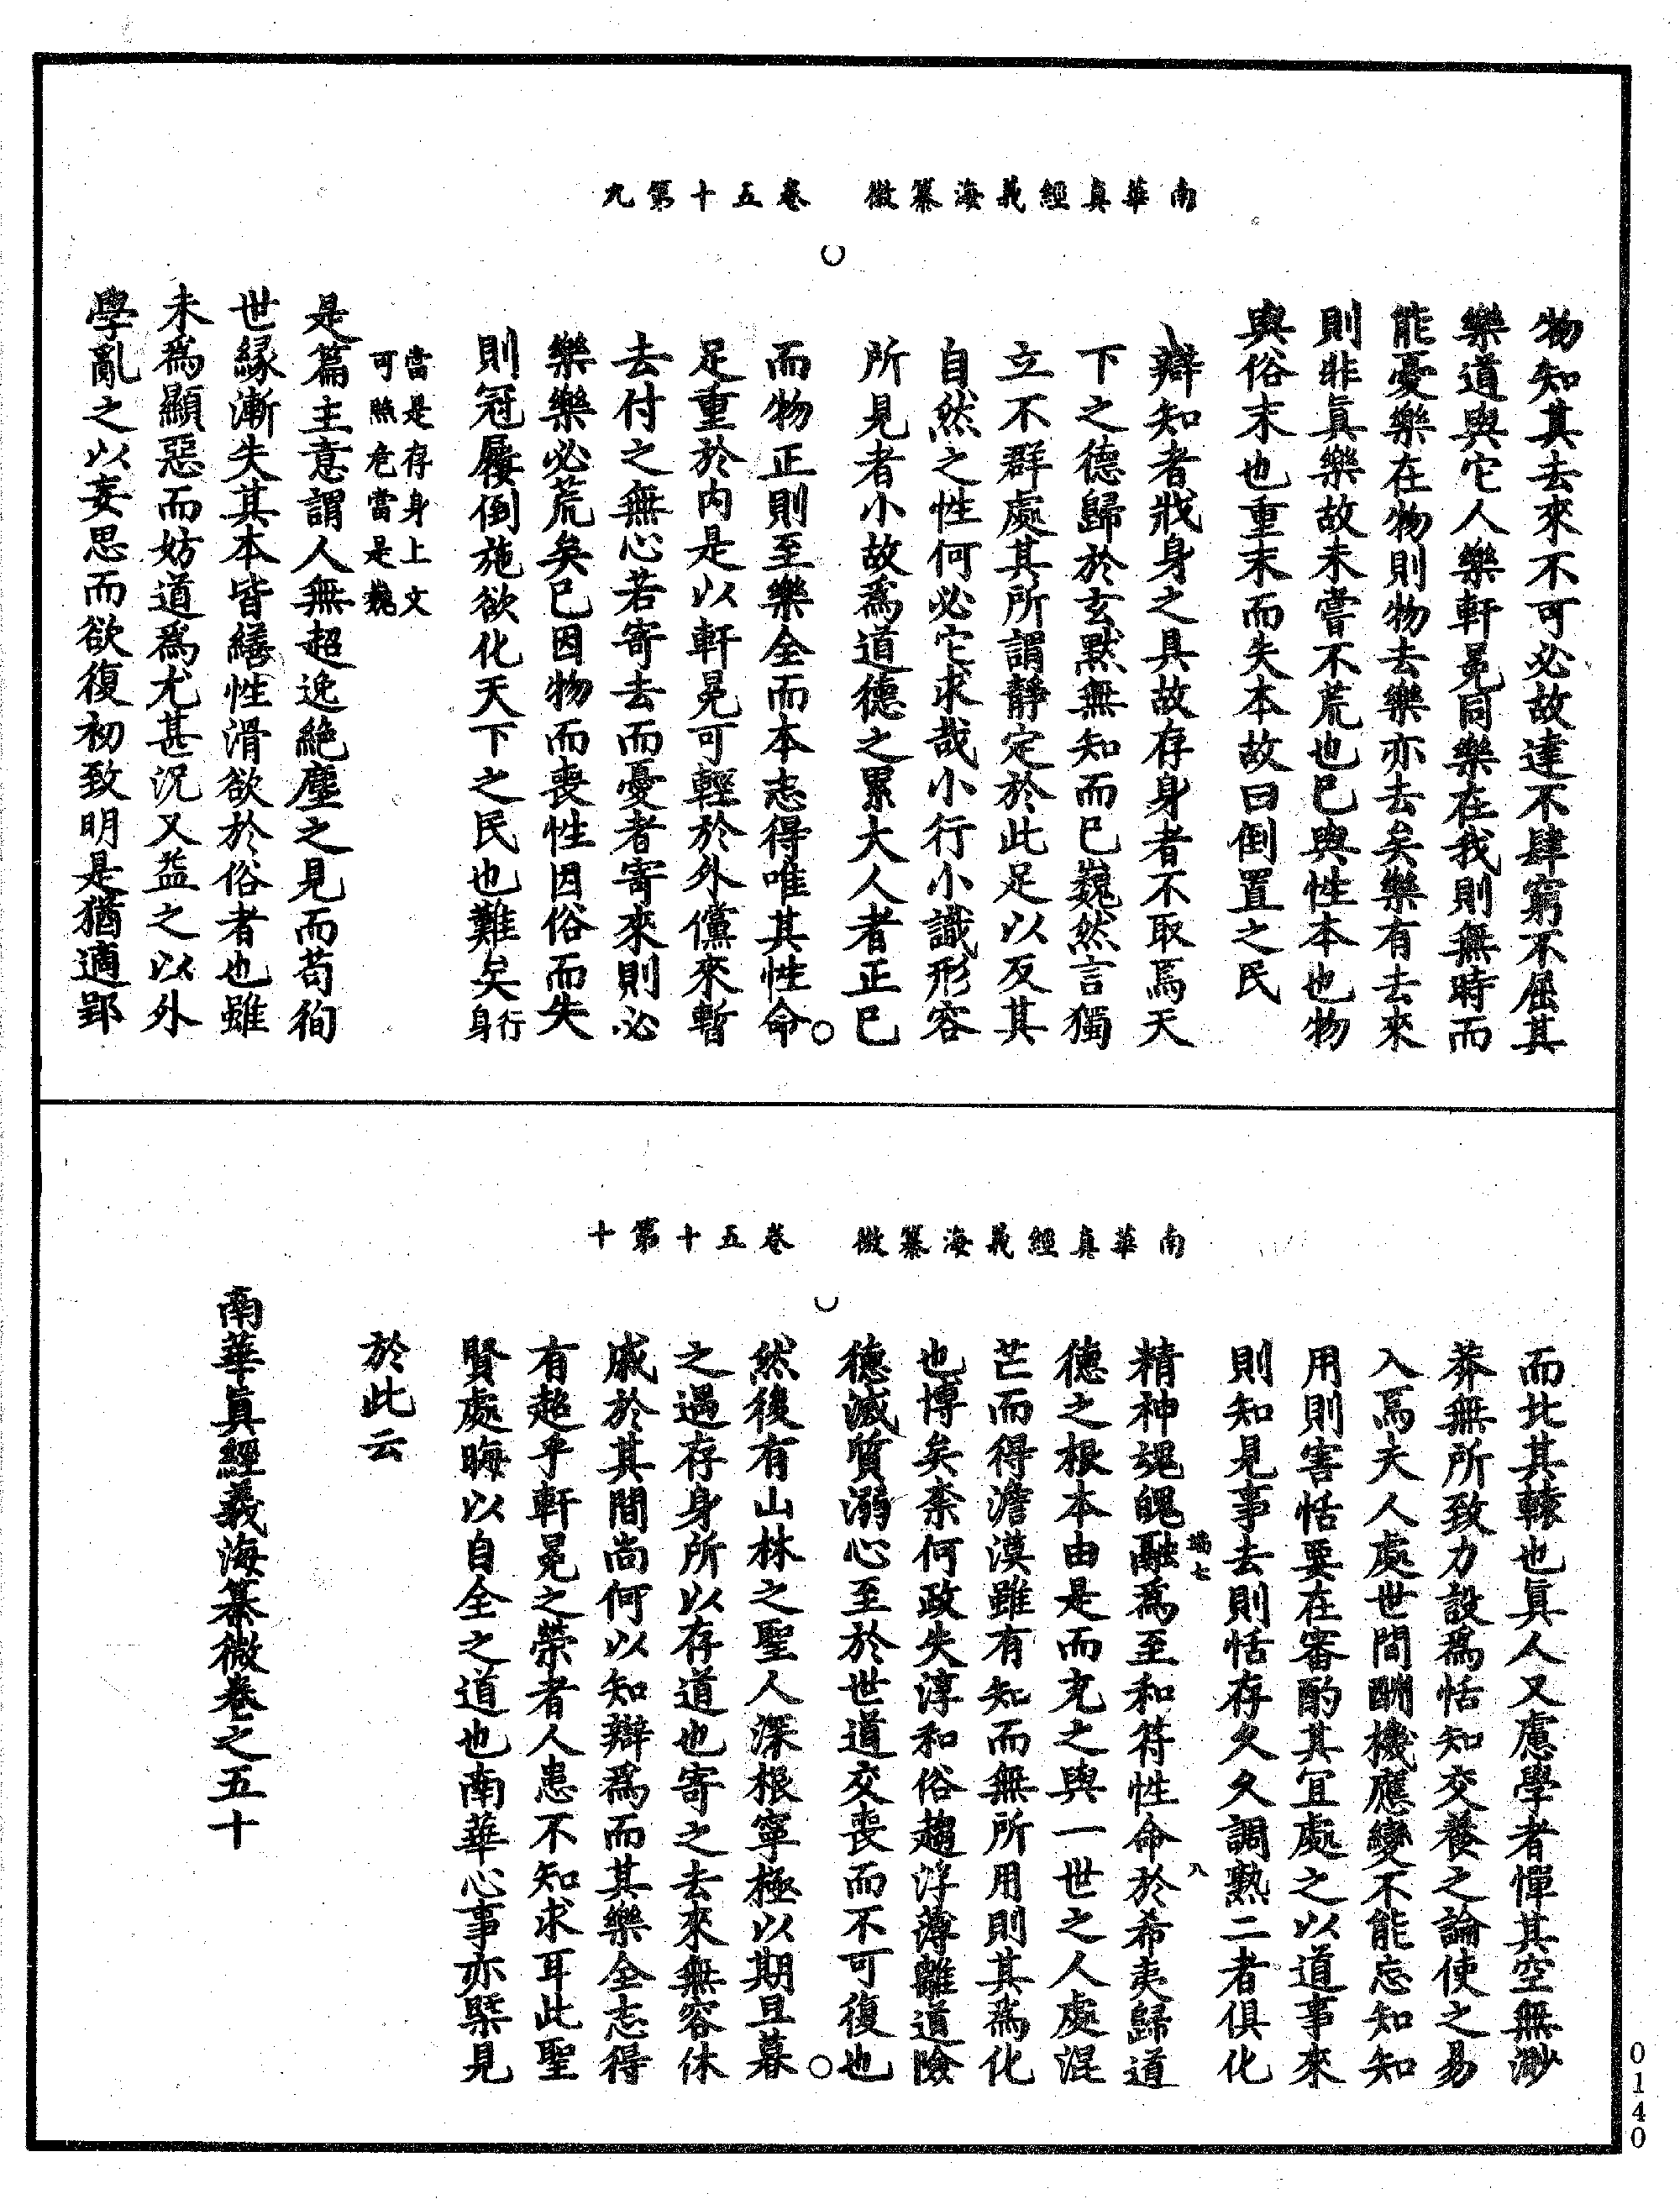 南華真經義海纂微　卷五十第九
物知其去來不可必故達不肆窮不屈其
樂道與它人樂軒冕同樂在我則無時而
能憂樂在物則物去樂亦去矣樂有去來
則非真樂故未嘗不荒也已與性本也物
與俗末也重末而失本故曰倒置之民
辯知者戕身之具故存身者不取焉天
下之德歸於玄默無知而已巍然言獨
立不群處其所謂靜定於此足以反其
自然之性何必它求哉小行小識形容
所見者小故爲道德之累大人者正已
而物正則至樂全而本志得唯其性命
足重於內是以軒冕可輕於外儻來暫
去付之無心若寄去而憂者寄來則必
樂樂必荒矣已因物而喪性因俗而失
則冠屨倒施欲化天下之民也難矣行身
當是存身上文
可照危當是巍
是篇主意謂人無超逸絕塵之見而苟徇
世緣漸失其本皆繕性滑欲於俗者也雖
未爲顯惡而妨道爲尤甚況又益之以外
學亂之以妄思而欲復初致明是猶適郢
南華真經義海纂微　卷五十第十
而北其轅也真人又慮學者憚其空無渺
莽無所致力設爲恬知交養之論使之易
入焉夫人處世間酬機應變不能忘知知
用則害恬要在審酌其宜處之以道事來
則知見事去則恬存久久調熟二者俱化
精神魂魄融爲至和符性命於希夷歸道
德之根本由是而充之與一世之人處混
芒而得澹漠雖有知而無所用則其爲化
也博矣柰何政失淳和俗趨浮薄離道險
德滅質溺心至於世道交喪而不可復也
然後有山林之聖人深根寧極以期旦暮
之遇存身所以存道也寄之去來無容休
戚於其間尚何以知辯爲而其樂全志得
有超乎軒冕之榮者人患不知求耳此聖
賢處晦以自全之道也南華心事亦槩見
於此云
南華真經義海纂微卷之五十
0140